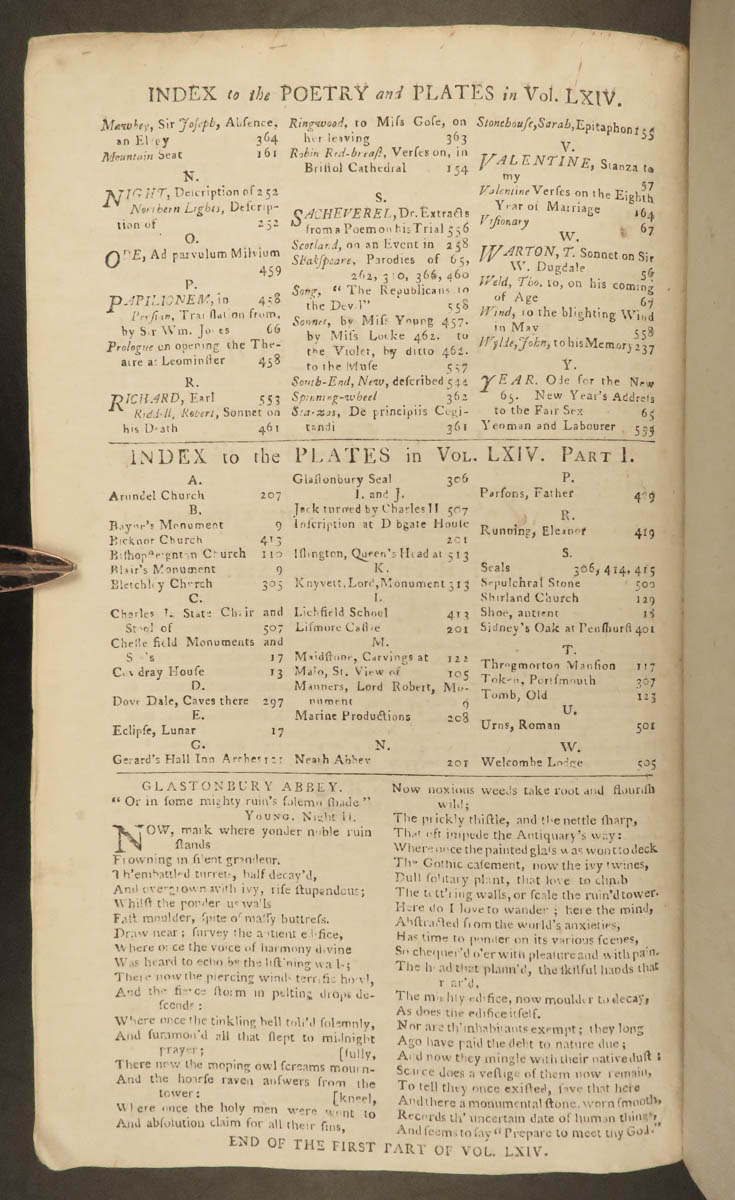 INDEX to the POETRY and PLATES in Vol. LXIV.
Mawbey, Sir Joſeph, Abſence,
an Elegy 364
Mountain Seat 161
N.
NIGHT, Deſcription of 252
Northern Lights, Deſcrip-
tion of 252
O.
ODE, Ad parvulum Milvium
459
P.
PAPILIONEM, in 458
Perſian, Tranſlation from,
by Sir Wm. Jones 66
Prologue on opening the The-
atre at Leominſter 458
R.
RICHARD, Earl 553
Riddell, Robert, Sonnet on
his Death 461
Ringwood, to Miſs Goſe, on
her leaving 363
Robin Red-breaſt, Verſes on, in
Briſtol Cathedral 154
S.
SACHEVEREL, Dr. Extracts
from a Poem on his Trial 556
Scotland, on an Event in 258
Shakſpeare, Parodies of 65,
262, 310, 366, 460
Song, “ The Republicans to
the Devil” 558
Sonnet, by Miſs Young 457.
by Miſs Locke 462. to
the Violet, by ditto 462.
to the Muſe 557
South-End, New, deſcribed 544
Spinning-wheel 362
Stanzas, De principiis Cogi-
tandi 361
Stonehouſe, Sarah, Epitaph on 155
V.
VALENTINE, Stanza to
my 57
Valentine Verſes on the Eighth
Year of Marriage 164
Viſionary 67
W.
WARTON, T. Sonnet on Sir
W. Dugdale 56
Weld, Tho. to, on his coming
of Age 67
Wind, to the blighting Wind
in May 558
Wylde, John, to his Memory 237
Y.
YEAR. Ode for the New
65. New Year's Addreſs
to the Fair Sex 65
Yeoman and Labourer
INDEX to the PLATES in VOL. LXIV. PART I.
A.
Arundel Church 207
B.
Bayne's Monument 9
Bicknor Church 413
Biſhopſteignton Church 110
Blair's Monument 9
Bletchley Church 305
C.
Charles I. State Chair and
Stool of 507
Cheſterfield Monuments and
Seals 17
Cowdray Houſe 13
D.
Dove Dale, Caves there 297
E.
Eclipſe, Lunar 17
G.
Gerard's Hall Inn Arches 121
Glaſtonbury Seal 306
I. and J.
Jack turned by Charles II 507
Inſcription at Digbate Houſe
201
Iſlington, Queen's Head at 513
K.
Knyvett, Lord, Monument 313
L.
Lichfield School 413
Liſmore Caſtle 201
M.
Maidſtone, Carvings at 122
Malo, St. View of 105
Manners, Lord Robert, Mo-
nument 9
Marine Productions 208
N.
Neath Abbey 201
P.
Parſons, Father 409
R.
Running, Eleanor 419
S.
Seals 306, 414, 415
Sepulchral Stone 500
Shirland Church 129
Shoe, antient 18
Sidney's Oak at Penſhurſt 401
T.
Throgmorton Manſion 117
Token, Portſmouth 307
Tomb, Old 123
U.
Urns, Roman 501
W.
Welcombe Lodge 505
GLASTONBURY ABBEY.
“ Or in ſome mighty ruin's ſolemn ſhade ”
YOUNG. Night II.
NOW, mark where yonder noble ruin
ſtands
Frowning in ſilent grandeur.
Th'embattled turrets, half decay'd,
And overgrown with ivy, riſe ſtupendous;
Whilſt the ponderous walls
Faſt moulder, ſpite of maſſy buttreſs.
Draw near; ſurvey the antient edifice,
Where once the voice of harmony divine
Was heard to echo by the liſt'ning walls;
There now the piercing winds terrific howl,
And the fierce ſtorm in pelting drops de-
ſcends :
Where once the tinkling bell toll'd ſolemnly,
And ſummon'd all that ſlept to midnight
prayer; [fully,
There now the moping owl ſcreams mourn-
And the hoarſe raven anſwers from the
tower: [kneel,
Where once the holy men were wont to
And abſolution claim for all their ſins,
Now noxious weeds take root and flouriſh
wild;
The prickly thiſtle, and the nettle ſharp,
That oft impede the Antiquary's way:
Where once the painted glaſs was wont to deck
The Gothic caſement, now the ivy twines,
Dull ſolitary plant, that love to climb
The tott'ring walls, or ſcale the ruin'd tower.
Here do I love to wander ; here the mind,
Abſtracted from the world's anxieties,
Has time to ponder on its various ſcenes,
So chequer'd o'er with pleaſure and with pain.
The head that plann'd, the ſkilful hands that
rear'd,
The mighty edifice, now moulder to decay,
As does the edifice itſelf.
Nor are th'inhabitants exempt; they long
Ago have paid the debt to nature due ;
And now they mingle with their native duſt :
Scarce does a veſtige of them now remain,
To tell they once exiſted, ſave that here
And there a monumental ſtone, worn ſmooth,
Records th' uncertain date of human things,
And ſeems to ſay “ Prepare to meet thy God.”
END OF THE FIRST PART OF VOL. LXIV.